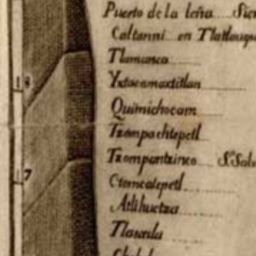 Puerto de la leña Sie
Caltanni en Tlatlauqu
Tlamanca
Yxtacamaxtitlan
Quimichocam
Tzompachtepetl
Tzompantzinco Sn Salv
Atlihuetza
Tlaxcala
18
17